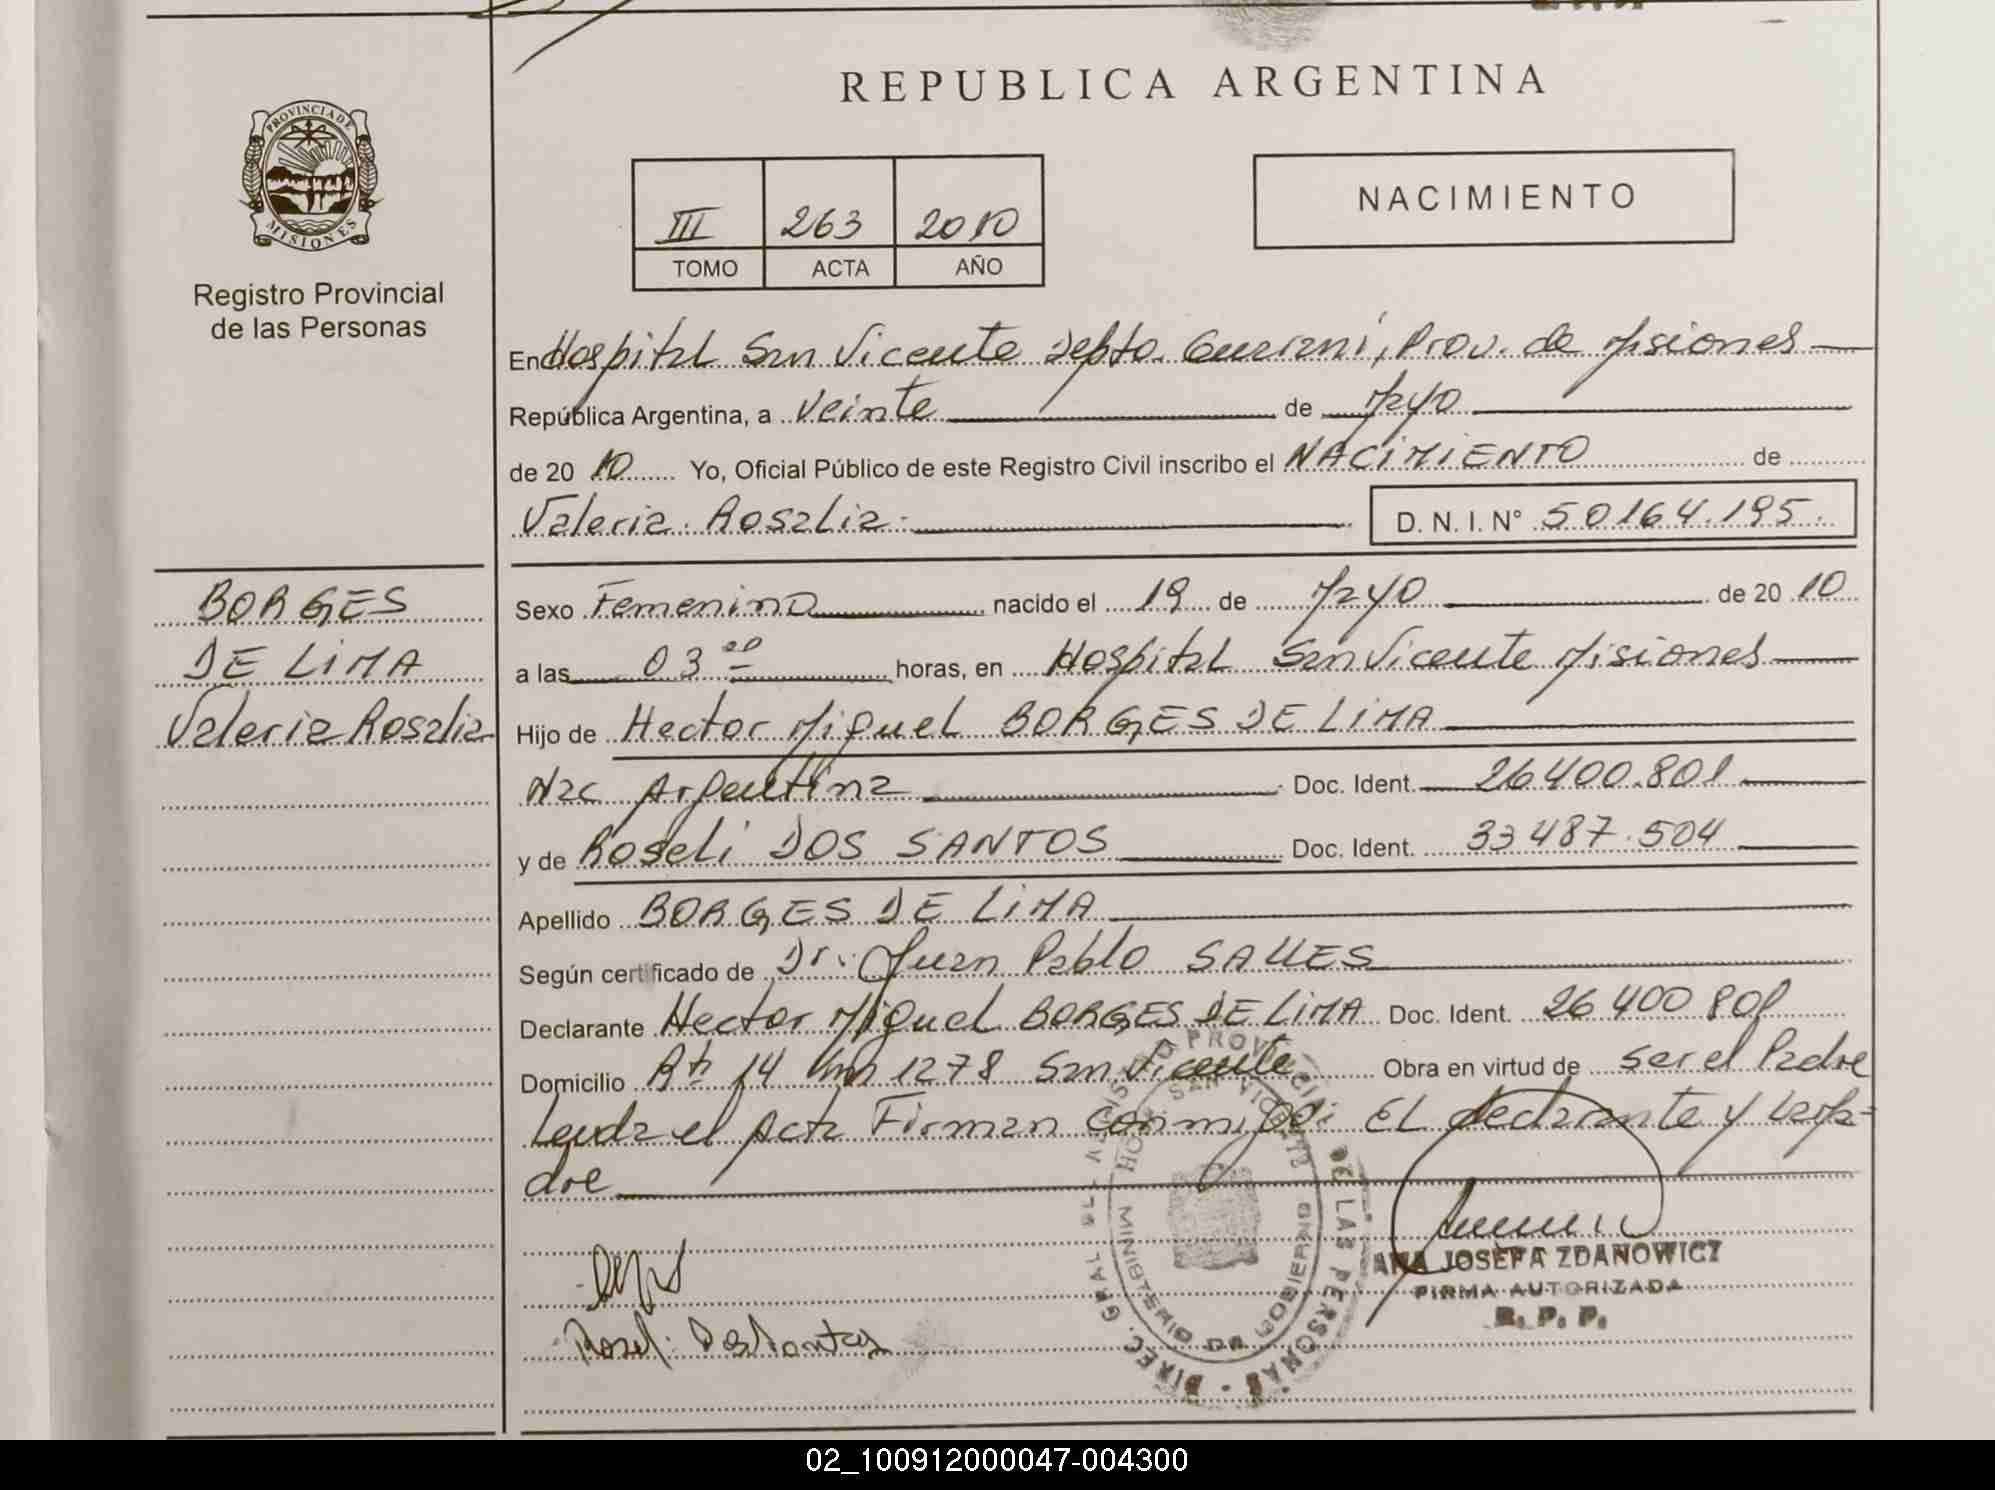 REPUBLICA ARGENTINA
PROVINCIA DE
MISIONES
Registro Provincial
de las Personas
III 263 2010
TOMO ACTA AÑO
NACIMIENTO
En Hospital San Vicente Depto. Guarani, Prov. de Misiones
República Argentina, a Veinte de Mayo
de 20 10 Yo, Oficial Público de este Registro Civil inscribo el NACIMIENTO de
Valeria Rosalia D. N. I. N° 50164.195.
BORGES
DE LIMA
Valeria Rosalia
Sexo Femenino nacido el 19 de Mayo de 20 10
a las 03 20 horas, en Hospital San Vicente Misiones
Hijo de Hector Miguel BORGES DE LIMA
Nac Argentina Doc. Ident. 26400.801
y de Roseli DOS SANTOS Doc. Ident. 33487.504
Apellido BORGES DE LIMA
Según certificado de Dr. Juan Pablo SALLES
Declarante Hector Miguel BORGES DE LIMA Doc. Ident. 26 400 801
Domicilio Rta 14 Km 1278 San Vicente Obra en virtud de ser el Padre
Leida el Acta Firman Conmigo: El declarante y la Ma=
dre
DIREC. GRAL DEL REGISTRO PROVINCIAL DE LAS PERSONAS
HOSP. SAN VICENTE
MINISTERIO DE GOBIERNO
ANA JOSEFA ZDANOWICZ
FIRMA AUTORIZADA
R. P. P.
Roseli Dos Santos
02_100912000047-004300